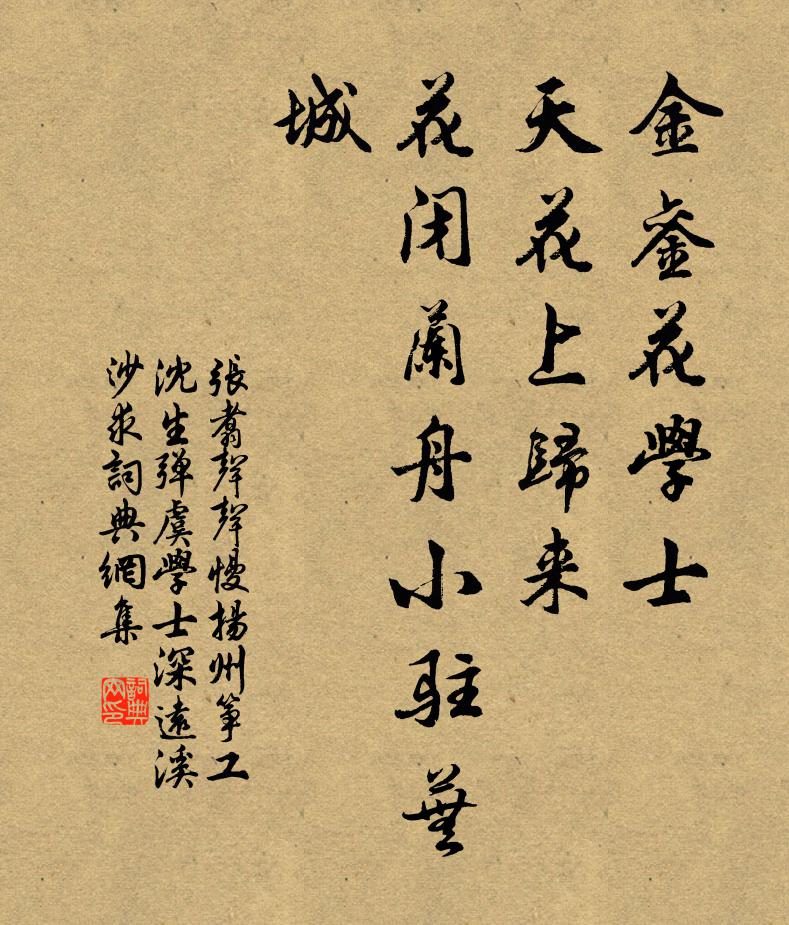 金銮花學士
天花上歸来
花闭蘭舟小駐蕪
城
張翥聲聲慢揚州箏工
沈生弹虞學士深遠溪
沙求詞典網集
詞典
网印